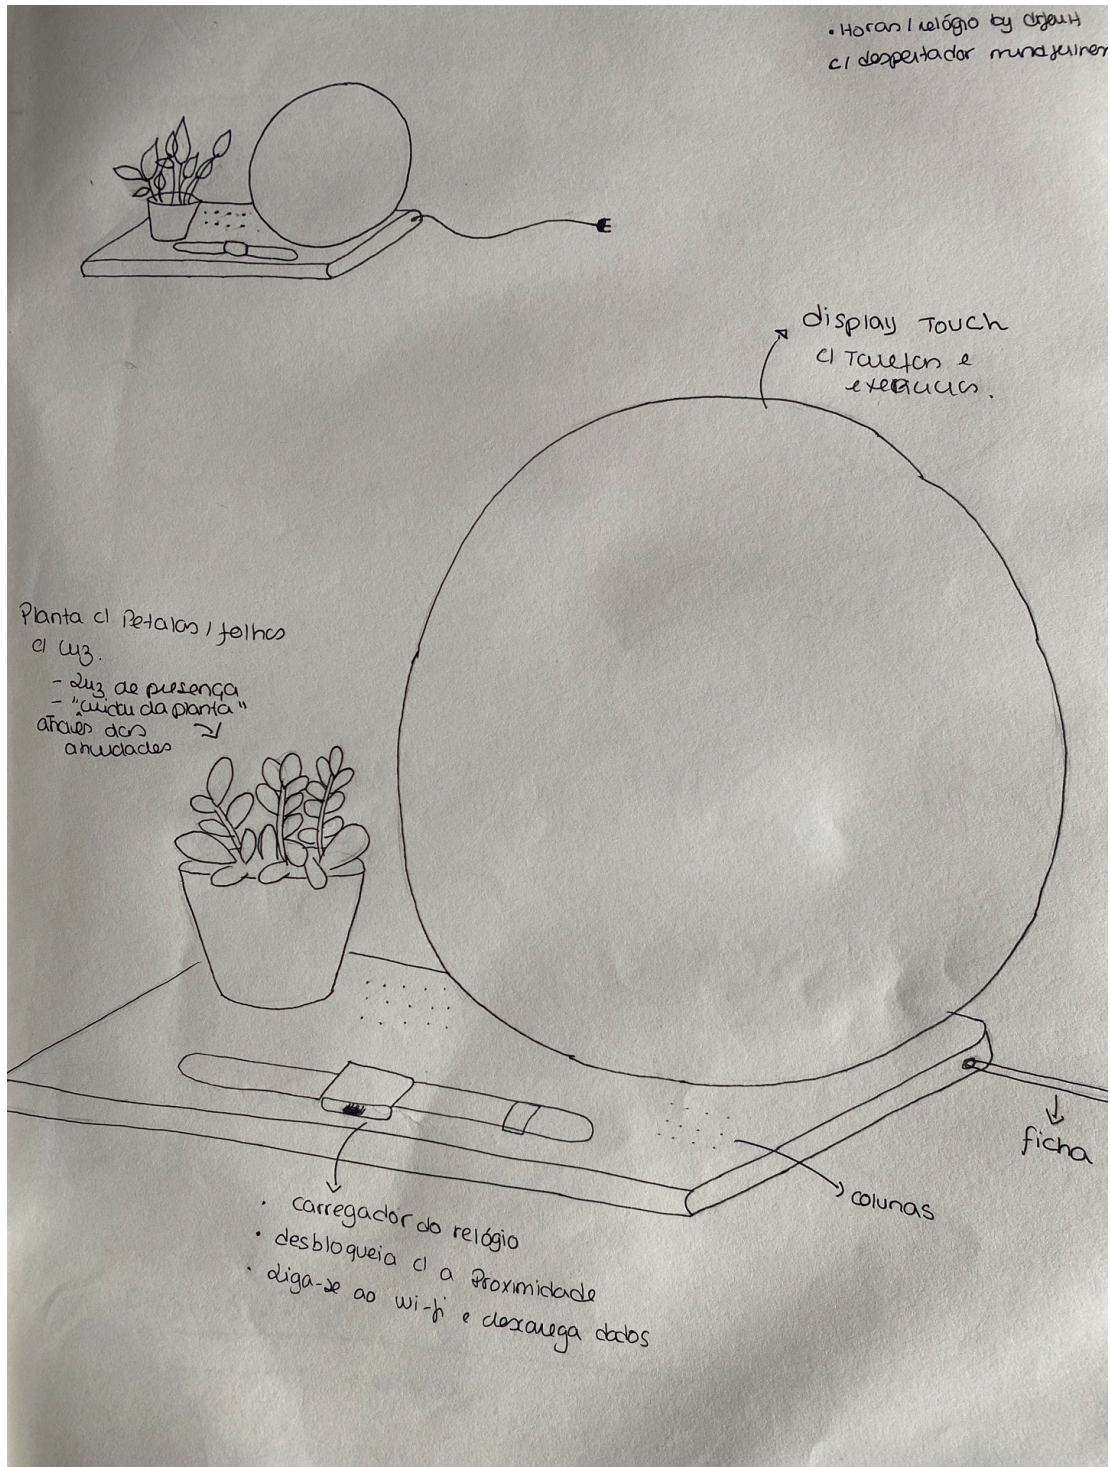 • Horas / relógio by default
c/ despertador mindfulness
display Touch
c/ Tarefas e
exercícios.
Planta c/ Pétalas / folhas
c/ luz.
- Luz de presença
- "cuidar da planta"
através das
atividades
ficha
colunas
• carregador do relógio
• desbloqueia c/ a Proximidade
• Liga-se ao wi-fi e descarrega dados